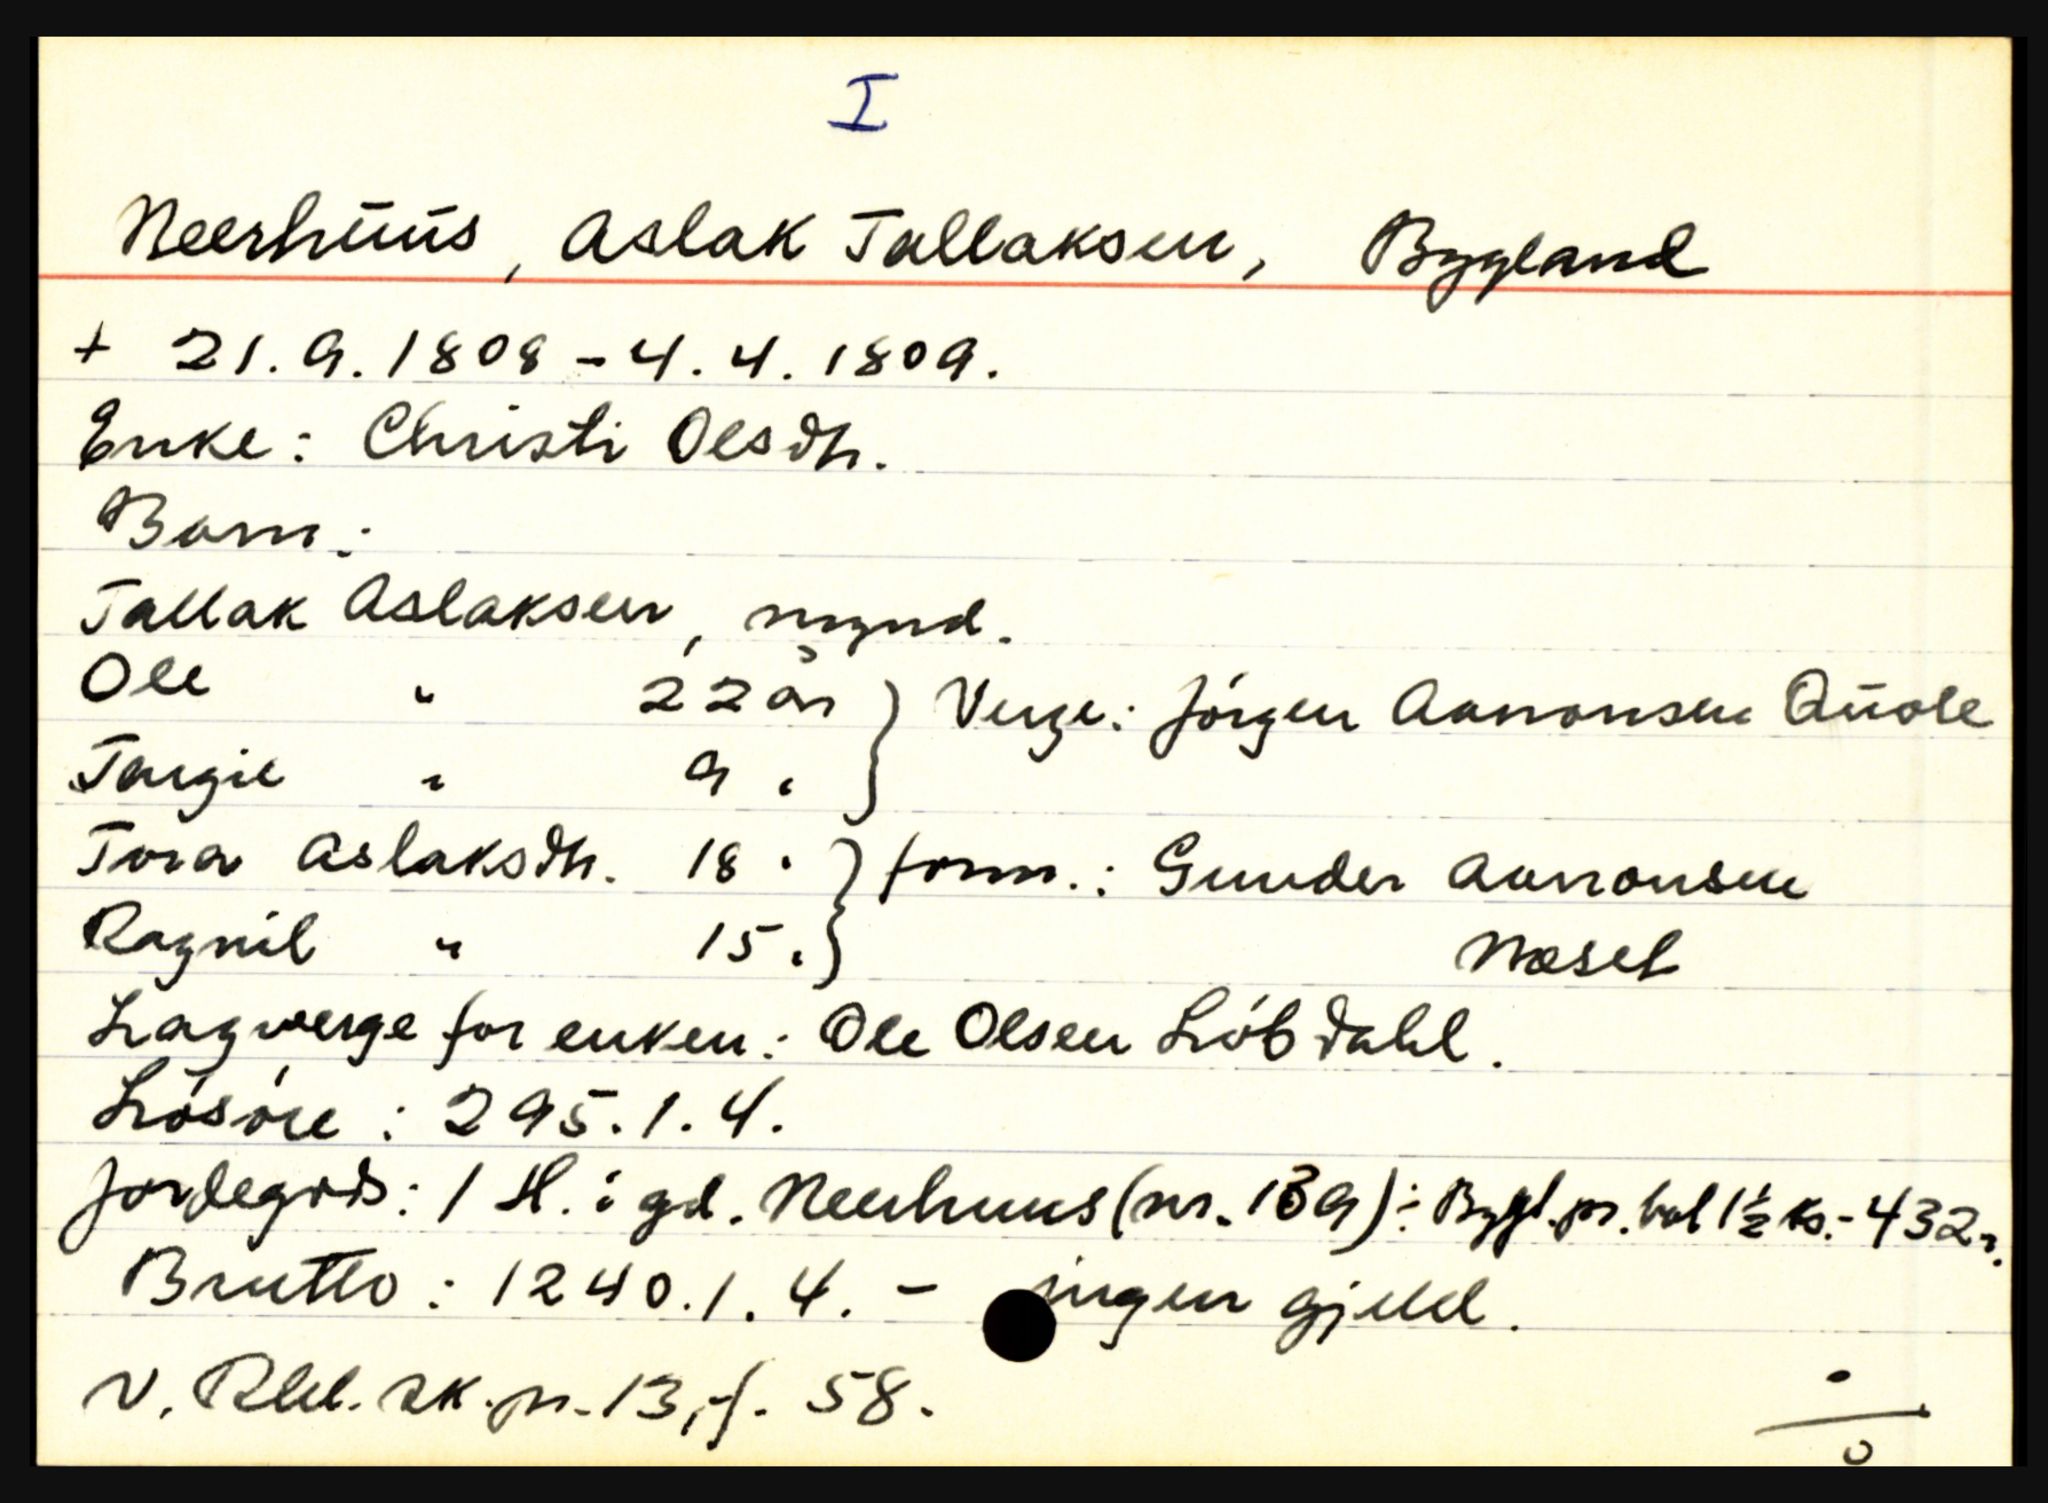 I
Neerhuus, Aslak Tallaksen, Bygland
+ 21.9.1808 - 4.4.1809.
Enke: Christi Olsdtr.
Barn:
Tallak Aslaksen, mynd.
Ole " 22 år } Verge: Jörgen Aanonsen Quole
Torgie " 9 "
Tora Aslaksdtr. 18 " } form.: Gunder Aanonsen
Ragnil " 15 " Næset
Lagverge for enken: Ole Olsen Löbdahl.
Lösöre: 295.1.4.
Jordegods: 1 H. i gd. Neerhuus (nr. 139) i Bygl. pr. bol 1½ ks. - 432
Brutto: 1240.1.4. - ingen gjeld.
v. Rbl. sk. pr. 13, f. 58.